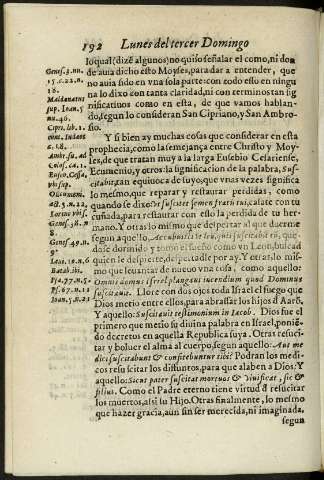 192 Lunes del tercer Domingo
lo qual (dizẽ algunos) no quiso señalar el como, ni don
de auia dicho esto Moyses, para dar a entender, que
no auia sido en vna sola parte: con todo esto en ningu
na lo dixo con tanta claridad, ni con terminos tan sig
nificatiuos como en esta, de que vamos hablan-
do, segun lo consideran San Cipriano, y San Ambro-
sio.
Y si bien ay muchas cosas que considerar en esta
prophecia, como la semejança entre Christo y Moy-
ses, de que tratan muy a la larga Eusebio Cesariense,
Ecumenio, y otros: la significacion de la palabra, Sus-
citabit, tan equiuoca de suyo, que vnas vezes significa
lo mesmo, que reparar y restaurar perdidas, como
quando se dixo: Suscitet semen fratri sui, casate con tu
cuñada, para restaurar con esso la perdida de tu her-
mano. Y otras lo mismo que despertar al que duerme
segun aquello,
de dormido y tomo el sueño como vn Leon, buscad
quien le despierte, despertadle por ay. Y otras lo mis-
mo que leuantar de nueuo vna cosa, como aquello:
Omnis domus isrrael plangat incendium quod Dominus
suscitauit. Llore con dos ojos Israel el fuego que
Dios metio entre ellos, para abrassar los hijos d̃ Aarõ,
Y aquello: Suscitauit testimonium in Iacob. Dios fue el
primero que metio su diuina palabra en Israel, poniẽ-
do decretos en aquella Republica suya. Otras resuci-
tar y boluer el alma al cuerpo, segun aquello: Aut me
dici suscitabunt & confitebuntur tibi? Podran los medi-
cos resuscitar los difuntos, para que alaben a Dios: Y
aquello: Sicut pater suscitat mortuos & viuificat, sic &
filius. Como el Padre eterno tiene virtud d̃ resucitar
los muertos, assi su Hijo. Otras finalmente, lo mesmo
que hazer gracia, aun sin ser merecida, ni imaginada,
segun
Genes. 3. nu.
15. c. 22. n.
16.
Maldonatus
sup. Ioan. 5
nu. 46.
Cipri. lib. 1.
cont. Iudæos
c. 18.
Ambr. su. ad
Colos. ca. 1.
vbi sup.
Genes. 38. n.
8.
Genes. 49. n.
9.
Psa. 77. n. 5
Ps. 87. n. 11
Ioan. 5. n. 21